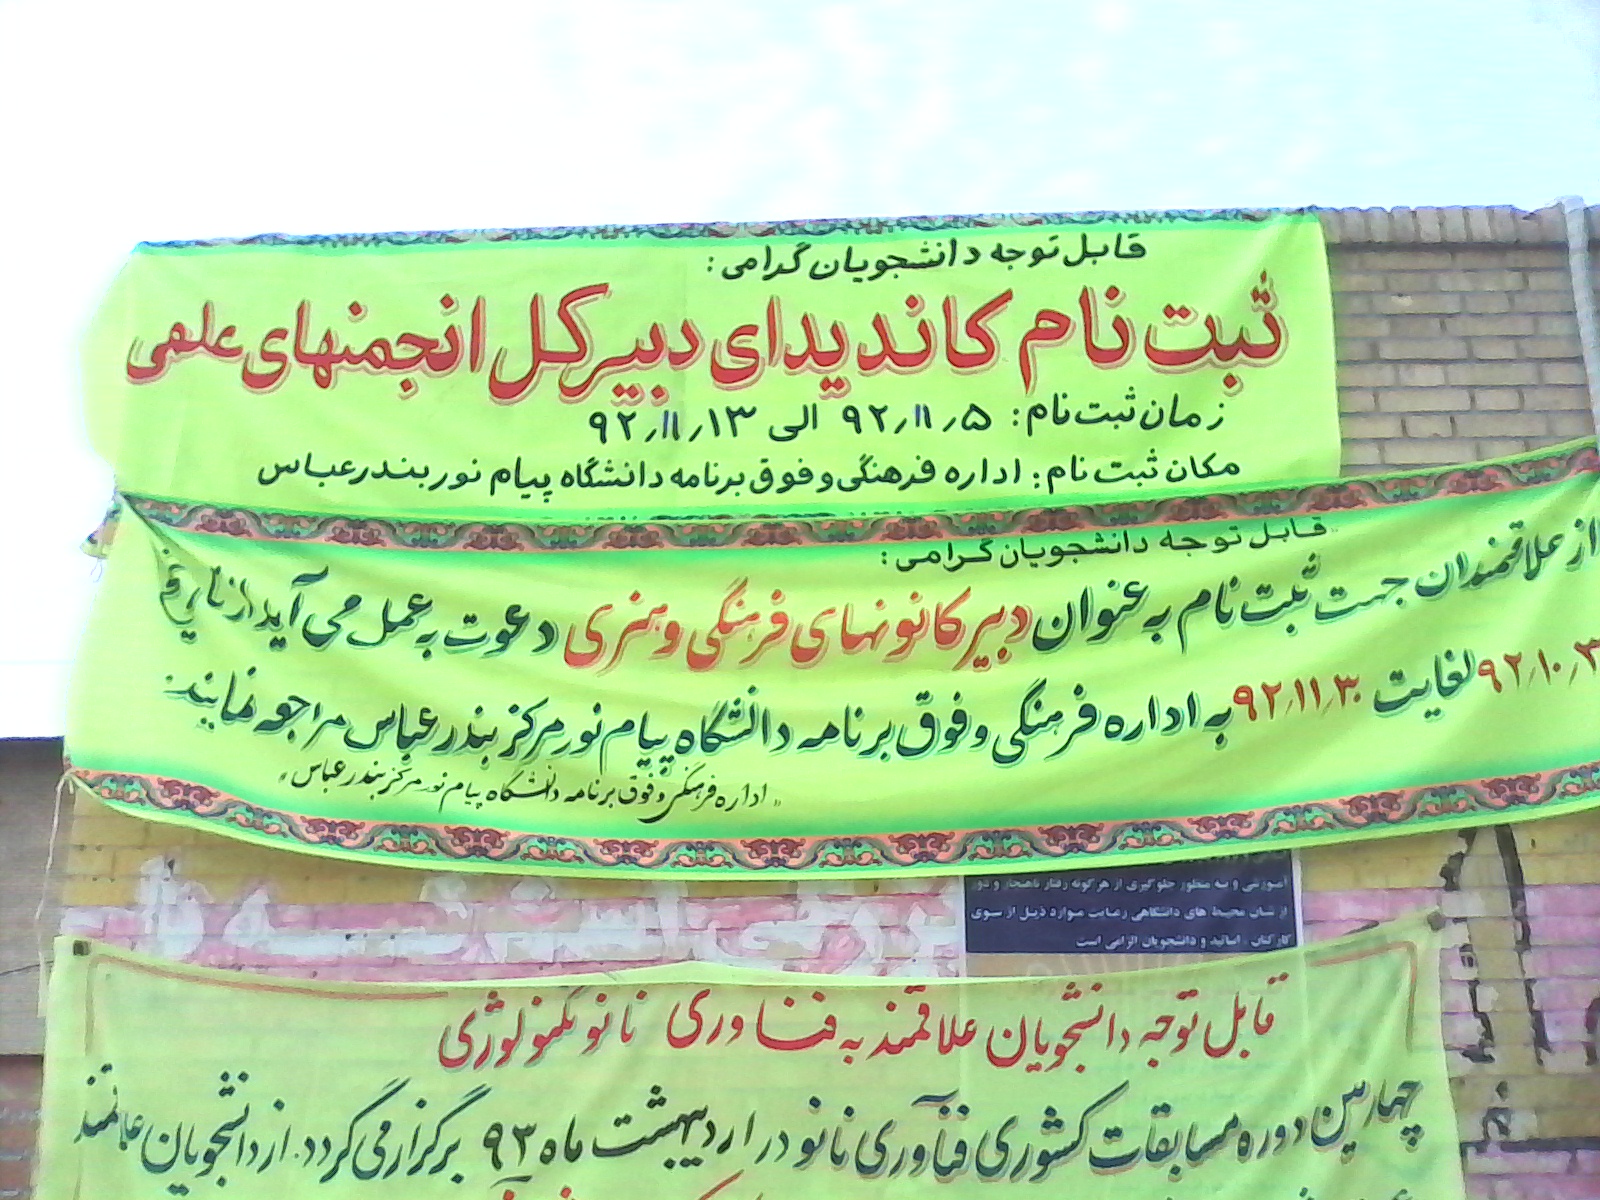 قابل توجه دانشجویان گرامی :
ثبت نام کاندیدای دبیرکل انجمنهای علمی
زمان ثبت نام : ۹۲٫۱۱٫۵ الی ۹۲٫۱۱٫۱۳
مکان ثبت نام : اداره فرهنگی و فوق برنامه دانشگاه پیام نور بندرعباس
قابل توجه دانشجویان گرامی :
از علاقمندان جهت ثبت نام به عنوان دبیر کانونهای فرهنگی و هنری دعوت به عمل می آید از تاریخ
لغایت ۹۲٫۱۱٫۳۰ به اداره فرهنگی و فوق برنامه دانشگاه پیام نور مرکز بندرعباس مراجعه نمایند.
" اداره فرهنگی و فوق برنامه دانشگاه پیام نور مرکز بندرعباس "
آموزشی و به منظور جلوگیری از هرگونه رفتار ناهنجار و دور
از شان محیط های دانشگاهی رعایت موارد ذیل از سوی
کارکنان ، اساتید و دانشجویان الزامی است
قابل توجه دانشجویان علاقمند به فناوری نانو تکنولوژی
چهارمین دوره مسابقات کشوری فنآوری نانو در اردیبهشت ماه ۹۳ برگزار می گردد. از دانشجویان علاقمند